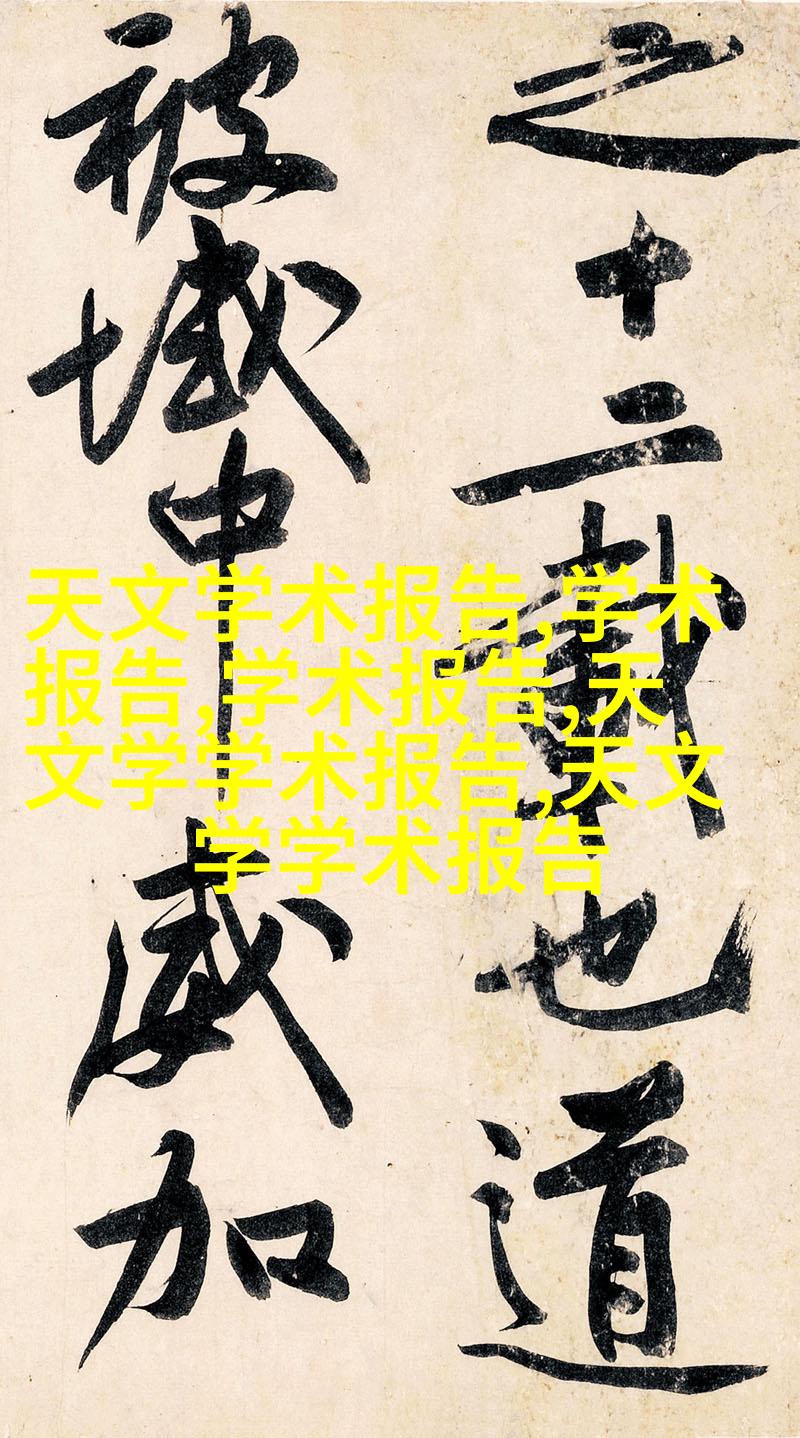 之十二載也道
被域中威加
天文学术报告,学术
报告,学术报告,天
文学学术报告,天文
学学术报告